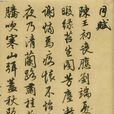 月賦
陳王初喪應劉端
暇綠苔生閣芳塵
夜乃清蘭路肅桂
騰吹寒山弭蓋秋